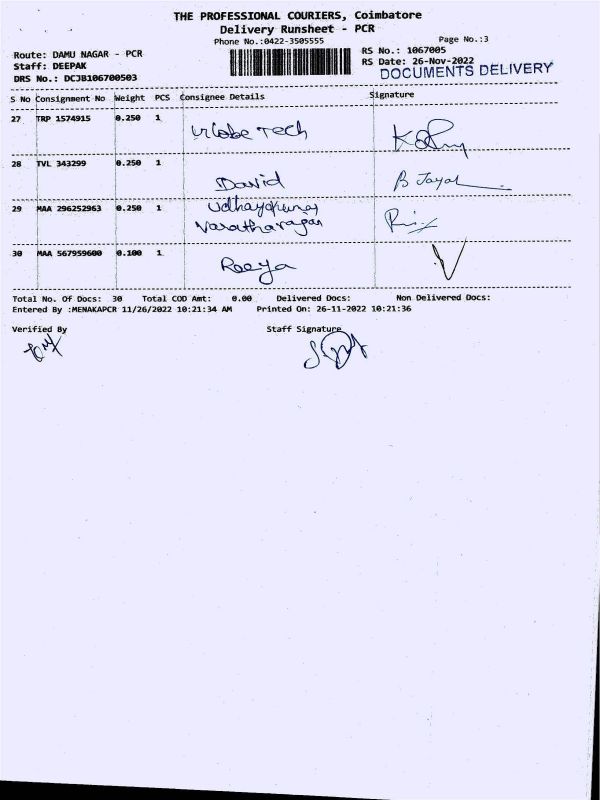 THE PROFESSIONAL COURIERS, Coimbatore
Delivery Runsheet - PCR
Phone No.:0422-3505555 Page No.:3
Route: DAMU NAGAR - PCR RS No.: 1067005
Staff: DEEPAK RS Date: 26-Nov-2022
DRS No.: DCJB106700503 DOCUMENTS DELIVERY
S No Consignment No Weight PCS Consignee Details Signature
27 TRP 1574915 0.250 1
Tech
28 TVL 343299 0.250 1
David B Jayal
29 MAA 296252963 0.250 1 Udhayakumar
Varatharagan
30 MAA 567959600 0.100 1
Reeya
Total No. Of Docs: 30 Total COD Amt: 0.00 Delivered Docs: Non Delivered Docs:
Entered By :MENAKAPCR 11/26/2022 10:21:34 AM Printed On: 26-11-2022 10:21:36
Verified By Staff Signature